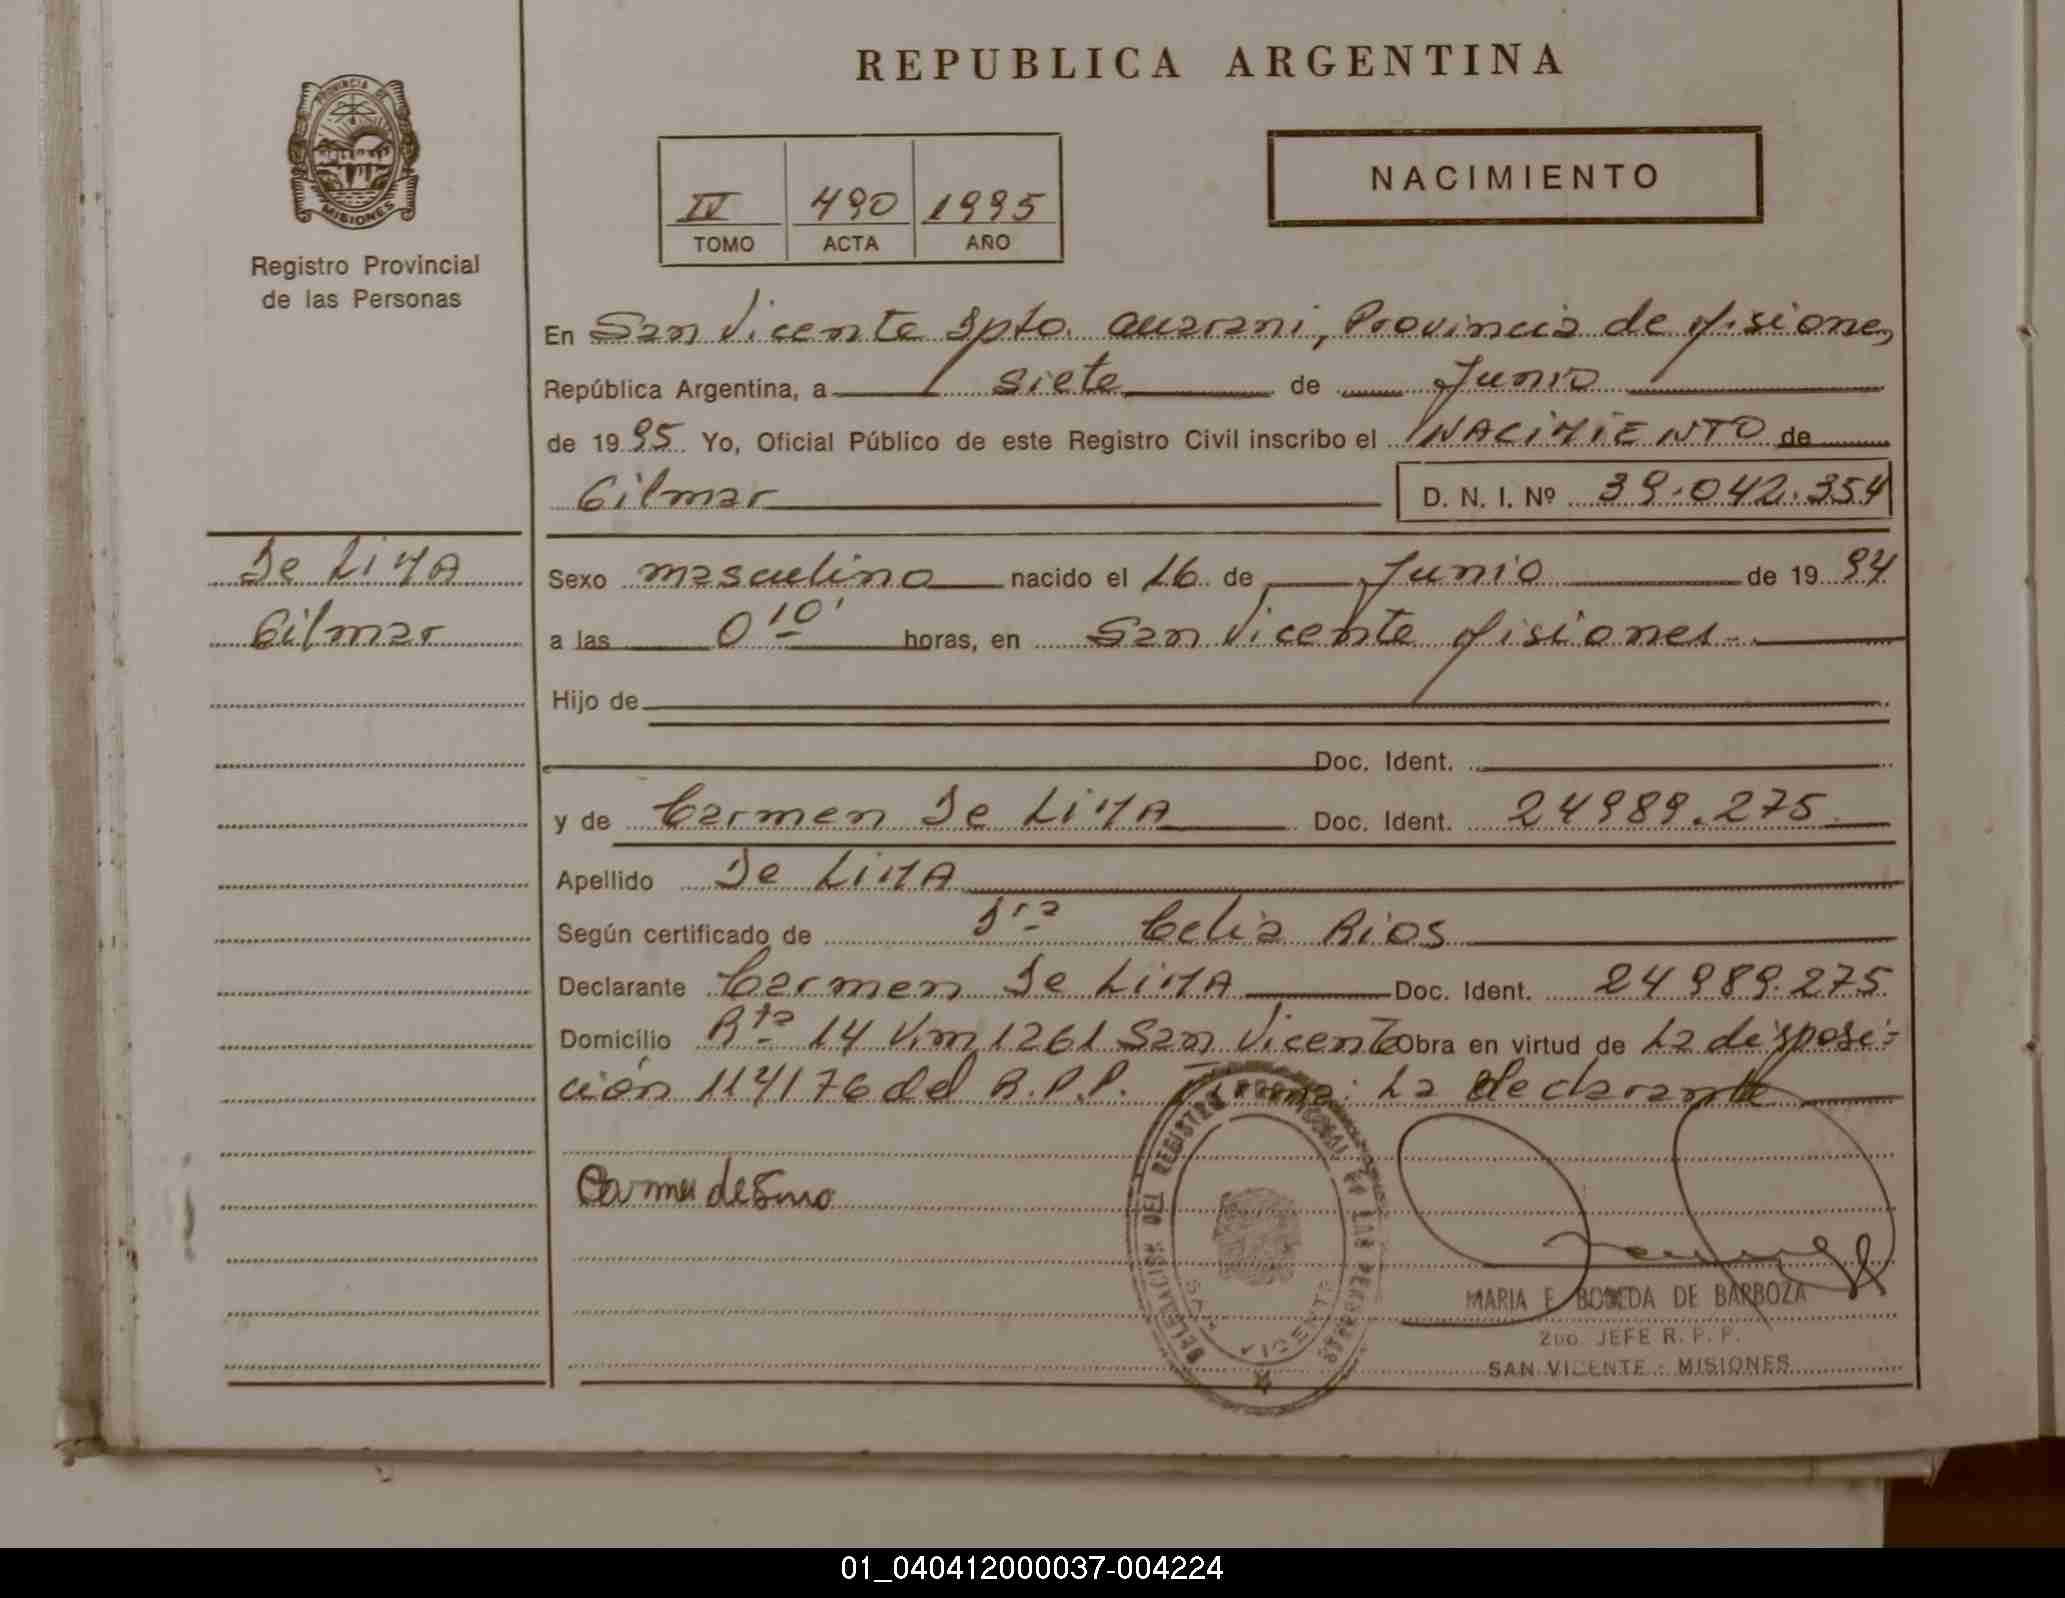 REPUBLICA ARGENTINA
PROVINCIA DE
MISIONES
Registro Provincial
de las Personas
IV 490 1995
TOMO ACTA AÑO
NACIMIENTO
En San Vicente Dpto. Guarani, Provincia de Misiones
República Argentina, a siete de Junio
de 1995 Yo, Oficial Público de este Registro Civil inscribo el NACIMIENTO de
Gilmar D. N. I. Nº 39.042.354
De LiMA
Gilmar
Sexo masculino nacido el 16 de Junio de 1994
a las 0 10' horas, en San Vicente Misiones
Hijo de
Doc. Ident.
y de Carmen De LiMA Doc. Ident. 24989.275
Apellido De LiMA
Según certificado de Dra Celia Rios
Declarante Carmen De LiMA Doc. Ident. 24989.275
Domicilio Rta 14 Km 1261 San Vicente Obra en virtud de La disposi-
ción 114/76 del R.P.P. Firma: La declarante
DELEGACION DEL REGISTRO PROVINCIAL DE LAS PERSONAS
SAN VICENTE
MARIA E. DE BARBOZA
2DO. JEFE R. P. P.
SAN VICENTE - MISIONES
01_040412000037-004224